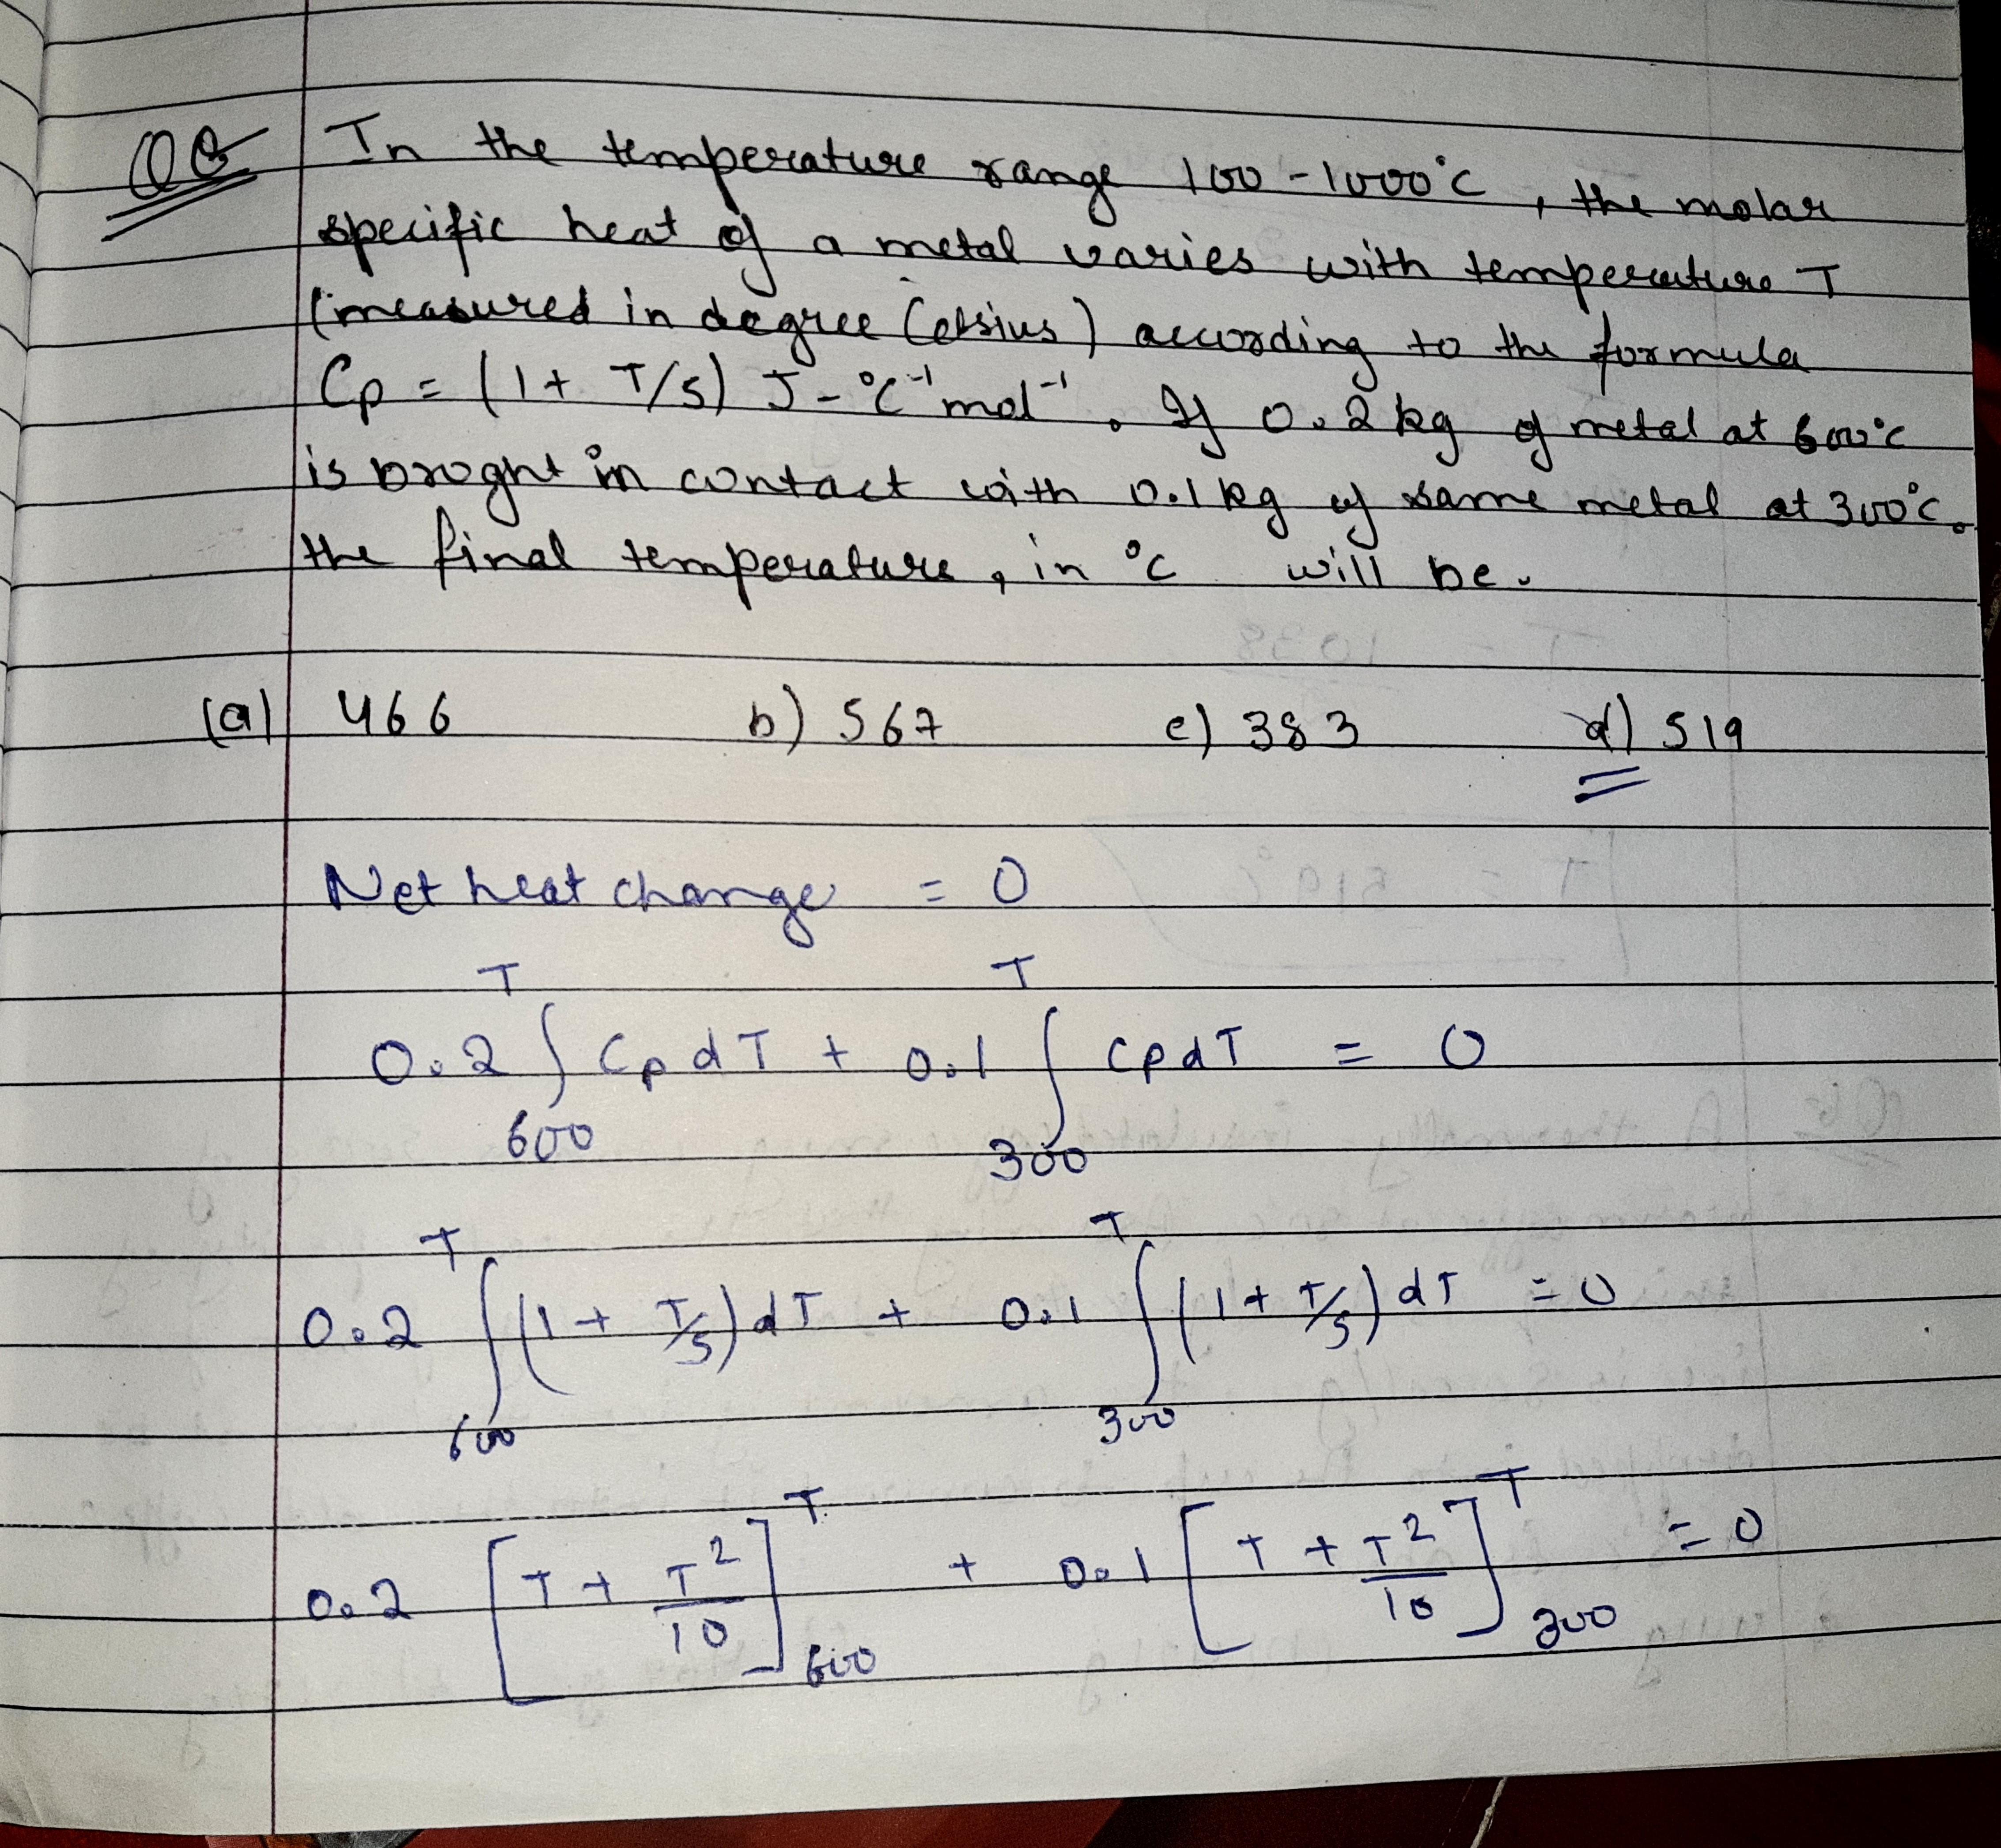 In the temperature range 100 - 1000°C , the molar
specific heat of a metal varies with temperature T
(measured in degree Celsius) according to the formula
Cp = (1 + T/5) J - °C⁻¹ mol⁻¹. If 0.2 kg of metal at 600°C
is broght in contact with 0.1 kg of same metal at 300°C.
the final temperature, in °C will be.
(a) 466 b) 567 c) 383 d) 519
Net heat change = 0
0.2 ∫₆₀₀ᵀ Cp dT + 0.1 ∫₃₀₀ᵀ Cp dT = 0
0.2 ∫₆₀₀ᵀ (1 + T/5) dT + 0.1 ∫₃₀₀ᵀ (1 + T/5) dT = 0
0.2 [T + T²/10]₆₀₀ᵀ + 0.1 [T + T²/10]₃₀₀ᵀ = 0